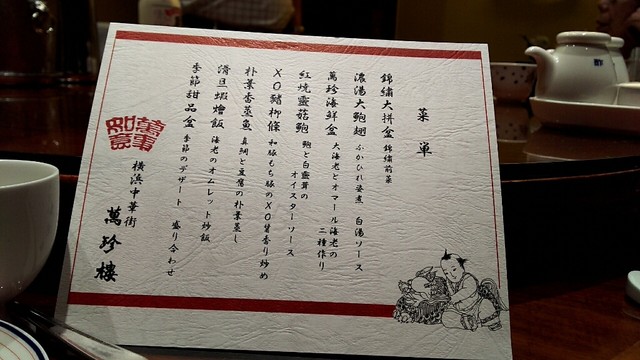 菜单
錦繡大拼盆 錦繡前菜
濃湯大鮑翅 ふかひれ姿煮 白湯ソース
萬珍海鮮盒 大海老とオマール海老の二種作り
紅焼靈菇鮑 鮑と白霊茸のオイスターソース
XO豬柳條 和豚もち豚のXO醤香り炒め
朴葉香蒸魚 真鯛と豆腐の朴葉蒸し
滑旦蝦燴飯 海老のオムレット炒飯
季節甜品盆 季節のデザート 盛り合わせ
萬事如意
横浜中華街
萬珍樓